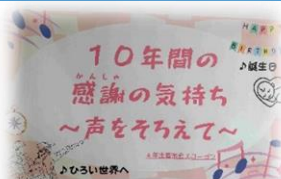 HAPPY
BIRTHDAY
♪誕生日
10年間の
かんしゃ
感謝の気持ち
～声をそろえて～
♪ひろい世界へ